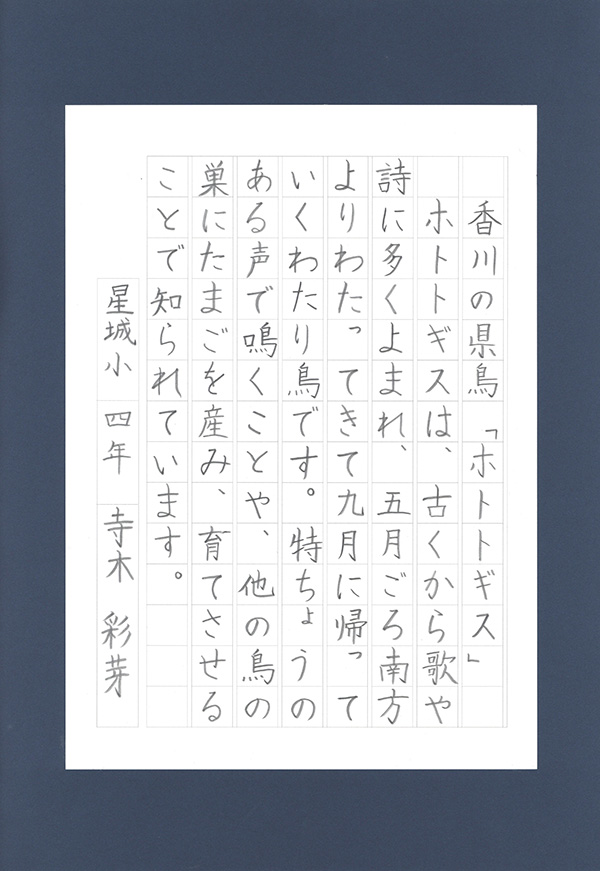 香川の県鳥「ホトトギス」
ホトトギスは、古くから歌や
詩に多くよまれ、五月ごろ南方
よりわたってきて九月に帰って
いくわたり鳥です。特ちょうの
ある声で鳴くことや、他の鳥の
巣にたまごを産み、育てさせる
ことで知られています。
星城小 四年 寺木 彩芽